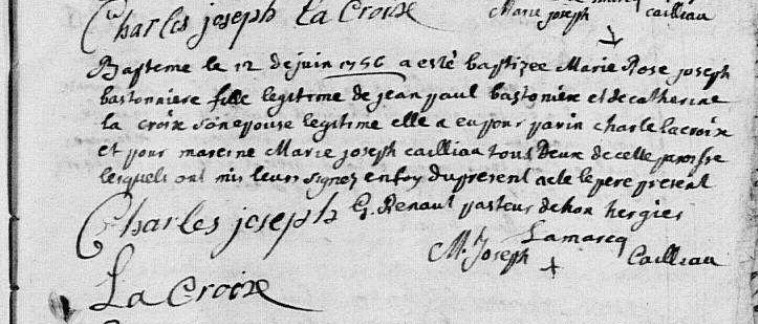 Charles joseph La Croix Marie joseph cailliau
Bapteme le 12 de juin 1756 a esté baptizee Marie Rose joseph
bastonniere fille legitime de jean paul bastoniere et de catherine
la croix son epouse legitime elle a eu pour parin charle lacroix
et pour mareine Marie joseph cailliau tous deux de cette paroisse
lesquels ont mis leurs signes en foy du present acte le pere present
Charles joseph G. Renaut pasteur de hon hergies
Lamarcq
M. Joseph + Cailliau
La Croix